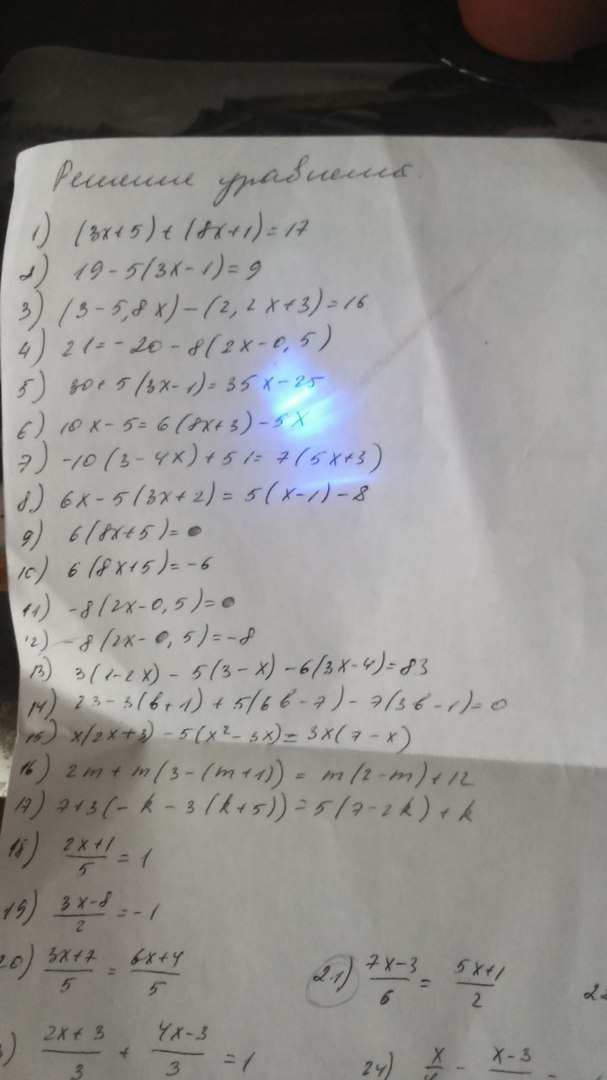 Решение уравнений.
1) (3x+5)+(8x+1)=17
2) 19-5(3x-1)=9
3) (3-5,8x)-(2,2x+3)=16
4) 21=-20-8(2x-0,5)
5) 30+5(3x-1)=35x-25
6) 10x-5=6(8x+3)-5x
7) -10(3-4x)+51=7(5x+3)
8) 6x-5(3x+2)=5(x-1)-8
9) 6(8x+5)=0
10) 6(8x+5)=-6
11) -8(2x-0,5)=0
12) -8(2x-0,5)=-8
13) 3(1-2x)-5(3-x)-6(3x-4)=83
14) 23-3(b+1)+5(6b-7)-7(3b-1)=0
15) x(2x+3)-5(x²-3x)=3x(7-x)
16) 2m+m(3-(m+1))=m(2-m)+12
17) 7+3(-k-3(k+5))=5(7-2k)+k
18) \frac{2x+1}{5}=1
19) \frac{3x-8}{2}=-1
20) \frac{3x+7}{5}=\frac{6x+4}{5} 21) \frac{7x-3}{6}=\frac{5x+1}{2}
\frac{2x+3}{3}+\frac{4x-3}{3}=1 24)